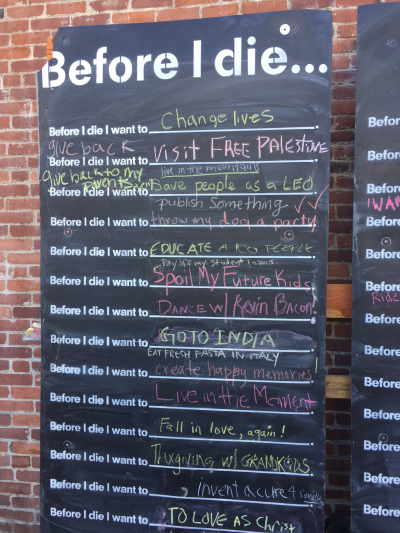 Before I die...
Before I die I want to Change lives.
give back
Before I die I want to visit FREE PALESTINE
give back to my parents
live in the
Before I die I want to Save people as a LEO
publish something
Before I die I want to throw my dog a party
Before I die I want to EDUCATE PEOPLE
Pay off my student loans
Before I die I want to Spoil My Future Kids
Before I die I want to DANCE w/ Kevin Bacon!
Before I die I want to GO TO INDIA
EAT FRESH PASTA IN ITALY
Before I die I want to create happy memories!
Before I die I want to Live in the Moment
Before I die I want to Fall in love, again!
Before I die I want to w/ GRANDKIDS
Before I die I want to invent a cure 4
Before I die I want to TO LOVE AS Christ
Before
Before
Before
I WAN
Before
Before
Ride
Before
Before
Before
Before
Before
Before
Before
Before